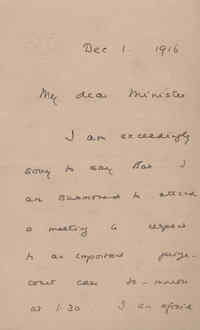 Dec 1. 1916
My dear Minister
I am exceedingly
sorry to say that I
am summoned to attend
a meeting in respect
to an important prize-
court case to-morrow
at 1.30 I am afraid